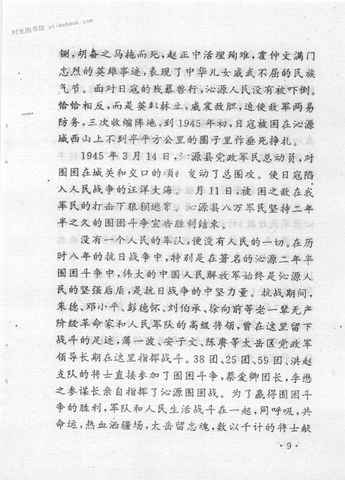 铡，胡奋之马拖而死，赵正中活埋殉难，霍仲文满门
忠烈的英雄事迹，表现了中华儿女威武不屈的民族
气节。面对日寇的残暴兽行，沁源人民没有被吓倒。
恰恰相反，而是英勇赫立，威震敌胆，迫使敌军两易
防务，三次收缩阵地，到1945年初，日寇被困在沁源
城西山上不到半平方公里的圈子里作垂死挣扎。
1945年3月14日，沁源县党政军民总动员，对
困在城关和交口的 发动了总围攻。使日寇陷
入人民战争的汪洋大海。 月11日，被困之敌在我
军民的打击下狼狈逃窜。沁源县八万军民坚持二年
半之久的围困斗争宣告胜利结束。
没有一个人民的军队，便没有人民的一切。在历
时八年的抗日战争中，特别是在著名的沁源二年半
围困斗争中，伟大的中国人民解放军始终是沁源人
民的坚强后盾，是抗日战争的中坚力量。抗战期间，
朱德、邓小平、彭德怀、刘伯承、徐向前等老一辈无产
阶级革命家和人民军队的高级将领，曾在这里留下
战斗的足迹，薄一波、安子文、陈赓等太岳区党政军
领导长期在这里指挥战斗。38团、25团、59团、洪赵
支队的将士直接参加了围困斗争，蔡爱卿团长，李懋
之参谋长亲自指挥了沁源围困战。为了赢得围困斗
争的胜利，军队和人民生活战斗在一起，同呼吸，共
命运，热血洒疆场，太岳留忠魂，数以千计的将士献
·9·